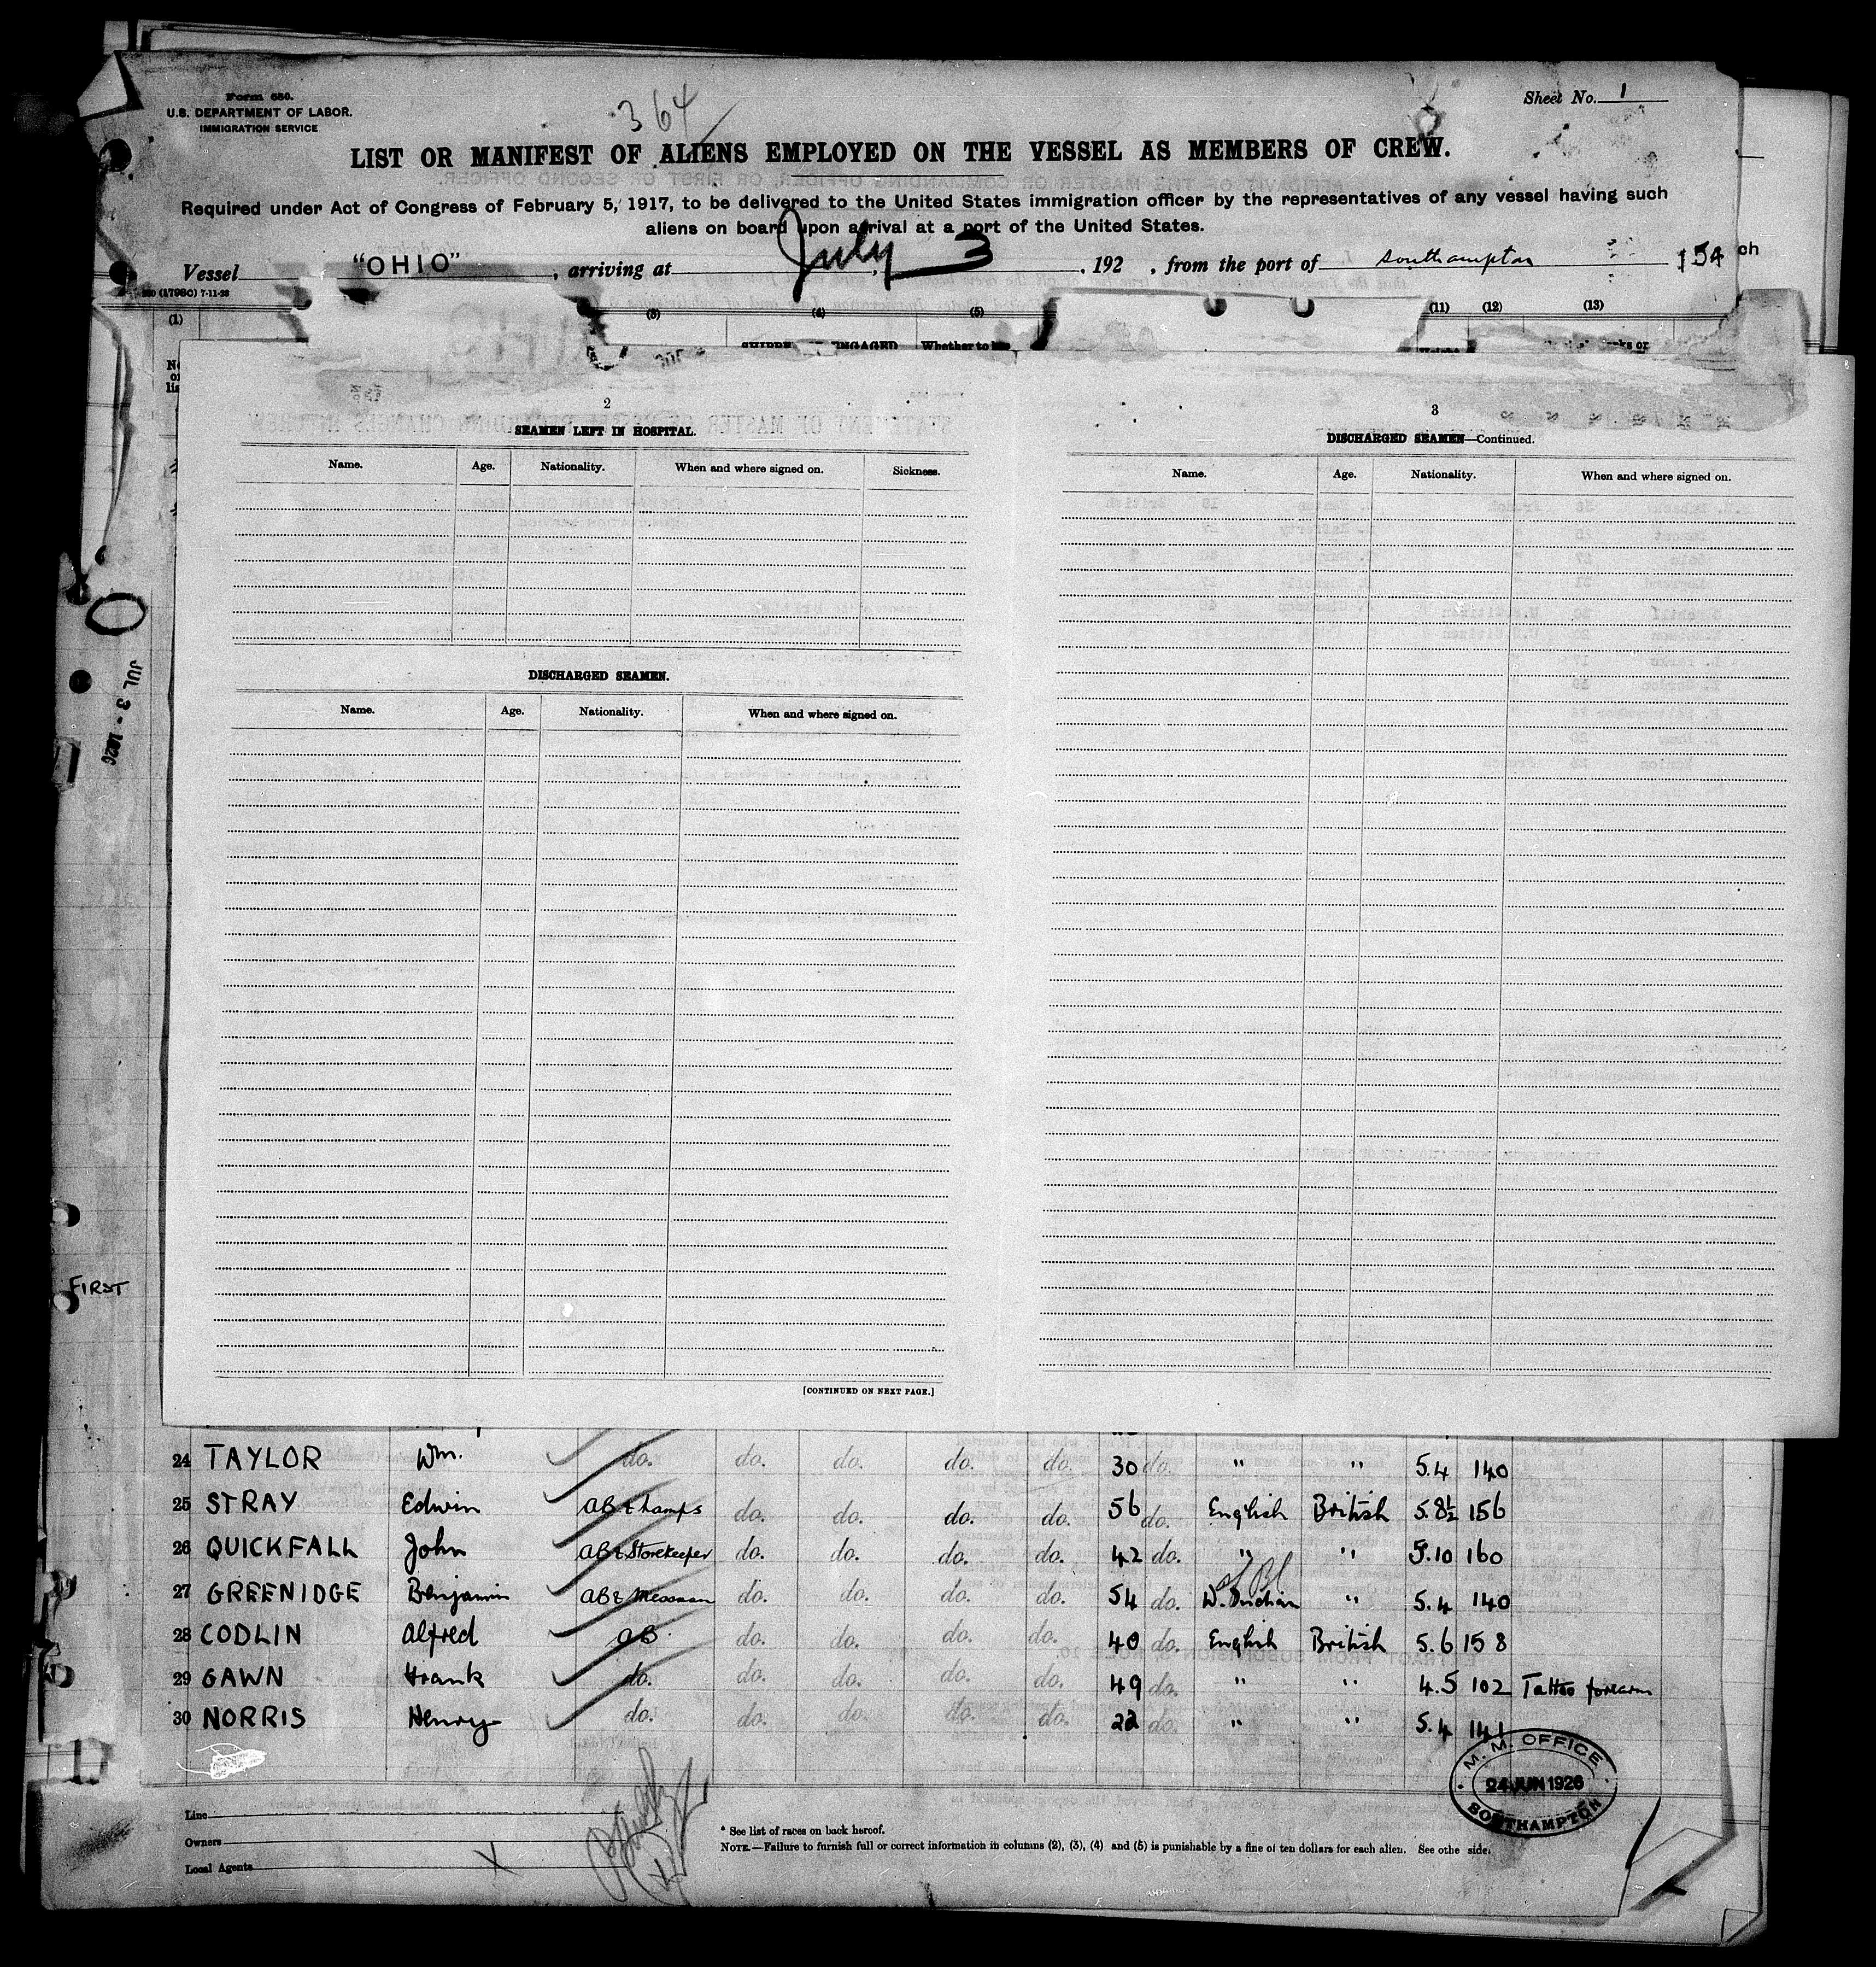 Form 680.
U.S. DEPARTMENT OF LABOR.
IMMIGRATION SERVICE
364
Sheet No. 1
LIST OR MANIFEST OF ALIENS EMPLOYED ON THE VESSEL AS MEMBERS OF CREW.
Required under Act of Congress of February 5, 1917, to be delivered to the United States immigration officer by the representatives of any vessel having such
aliens on board upon arrival at a port of the United States.
Vessel "OHIO", arriving at July 3, 192 , from the port of Southampton 154 ch
(1) (3) (4) (5) (11) (12) (13)
Whether to be
2
SEAMEN LEFT IN HOSPITAL.
Name. Age. Nationality. When and where signed on. Sickness.
DISCHARGED SEAMEN.
Name. Age. Nationality. When and where signed on.
[CONTINUED ON NEXT PAGE.]
3
DISCHARGED SEAMEN—Continued.
Name. Age. Nationality. When and where signed on.
JUL 3 - 1926
FIRST
24 TAYLOR Wm. do. do. do. do. do. 30 do. " " 5.4 140
25 STRAY Edwin AB & Lamps do. do. do. do. 56 do. English British 5.8½ 156
26 QUICKFALL John AB & Storekeeper do. do. do. do. 42 do. " " 5.10 160
27 GREENIDGE Benjamin AB & Messman do. do. do. do. 54 do. W. Indian " 5.4 140
28 CODLIN Alfred AB. do. do. do. do. 40 do. English British 5.6 158
29 GAWN Frank do. do. do. do. do. 49 do. " " 4.5 102 Tattoo forearm
30 NORRIS Henry do. do. do. do. do. 22 do. " " 5.4 141
M. M. OFFICE
24 JUN 1926
SOUTHAMPTON
Line
Owners
Local Agents
X
* See list of races on back hereof.
NOTE.—Failure to furnish full or correct information in columns (2), (3), (4) and (5) is punishable by a fine of ten dollars for each alien. See othe side.